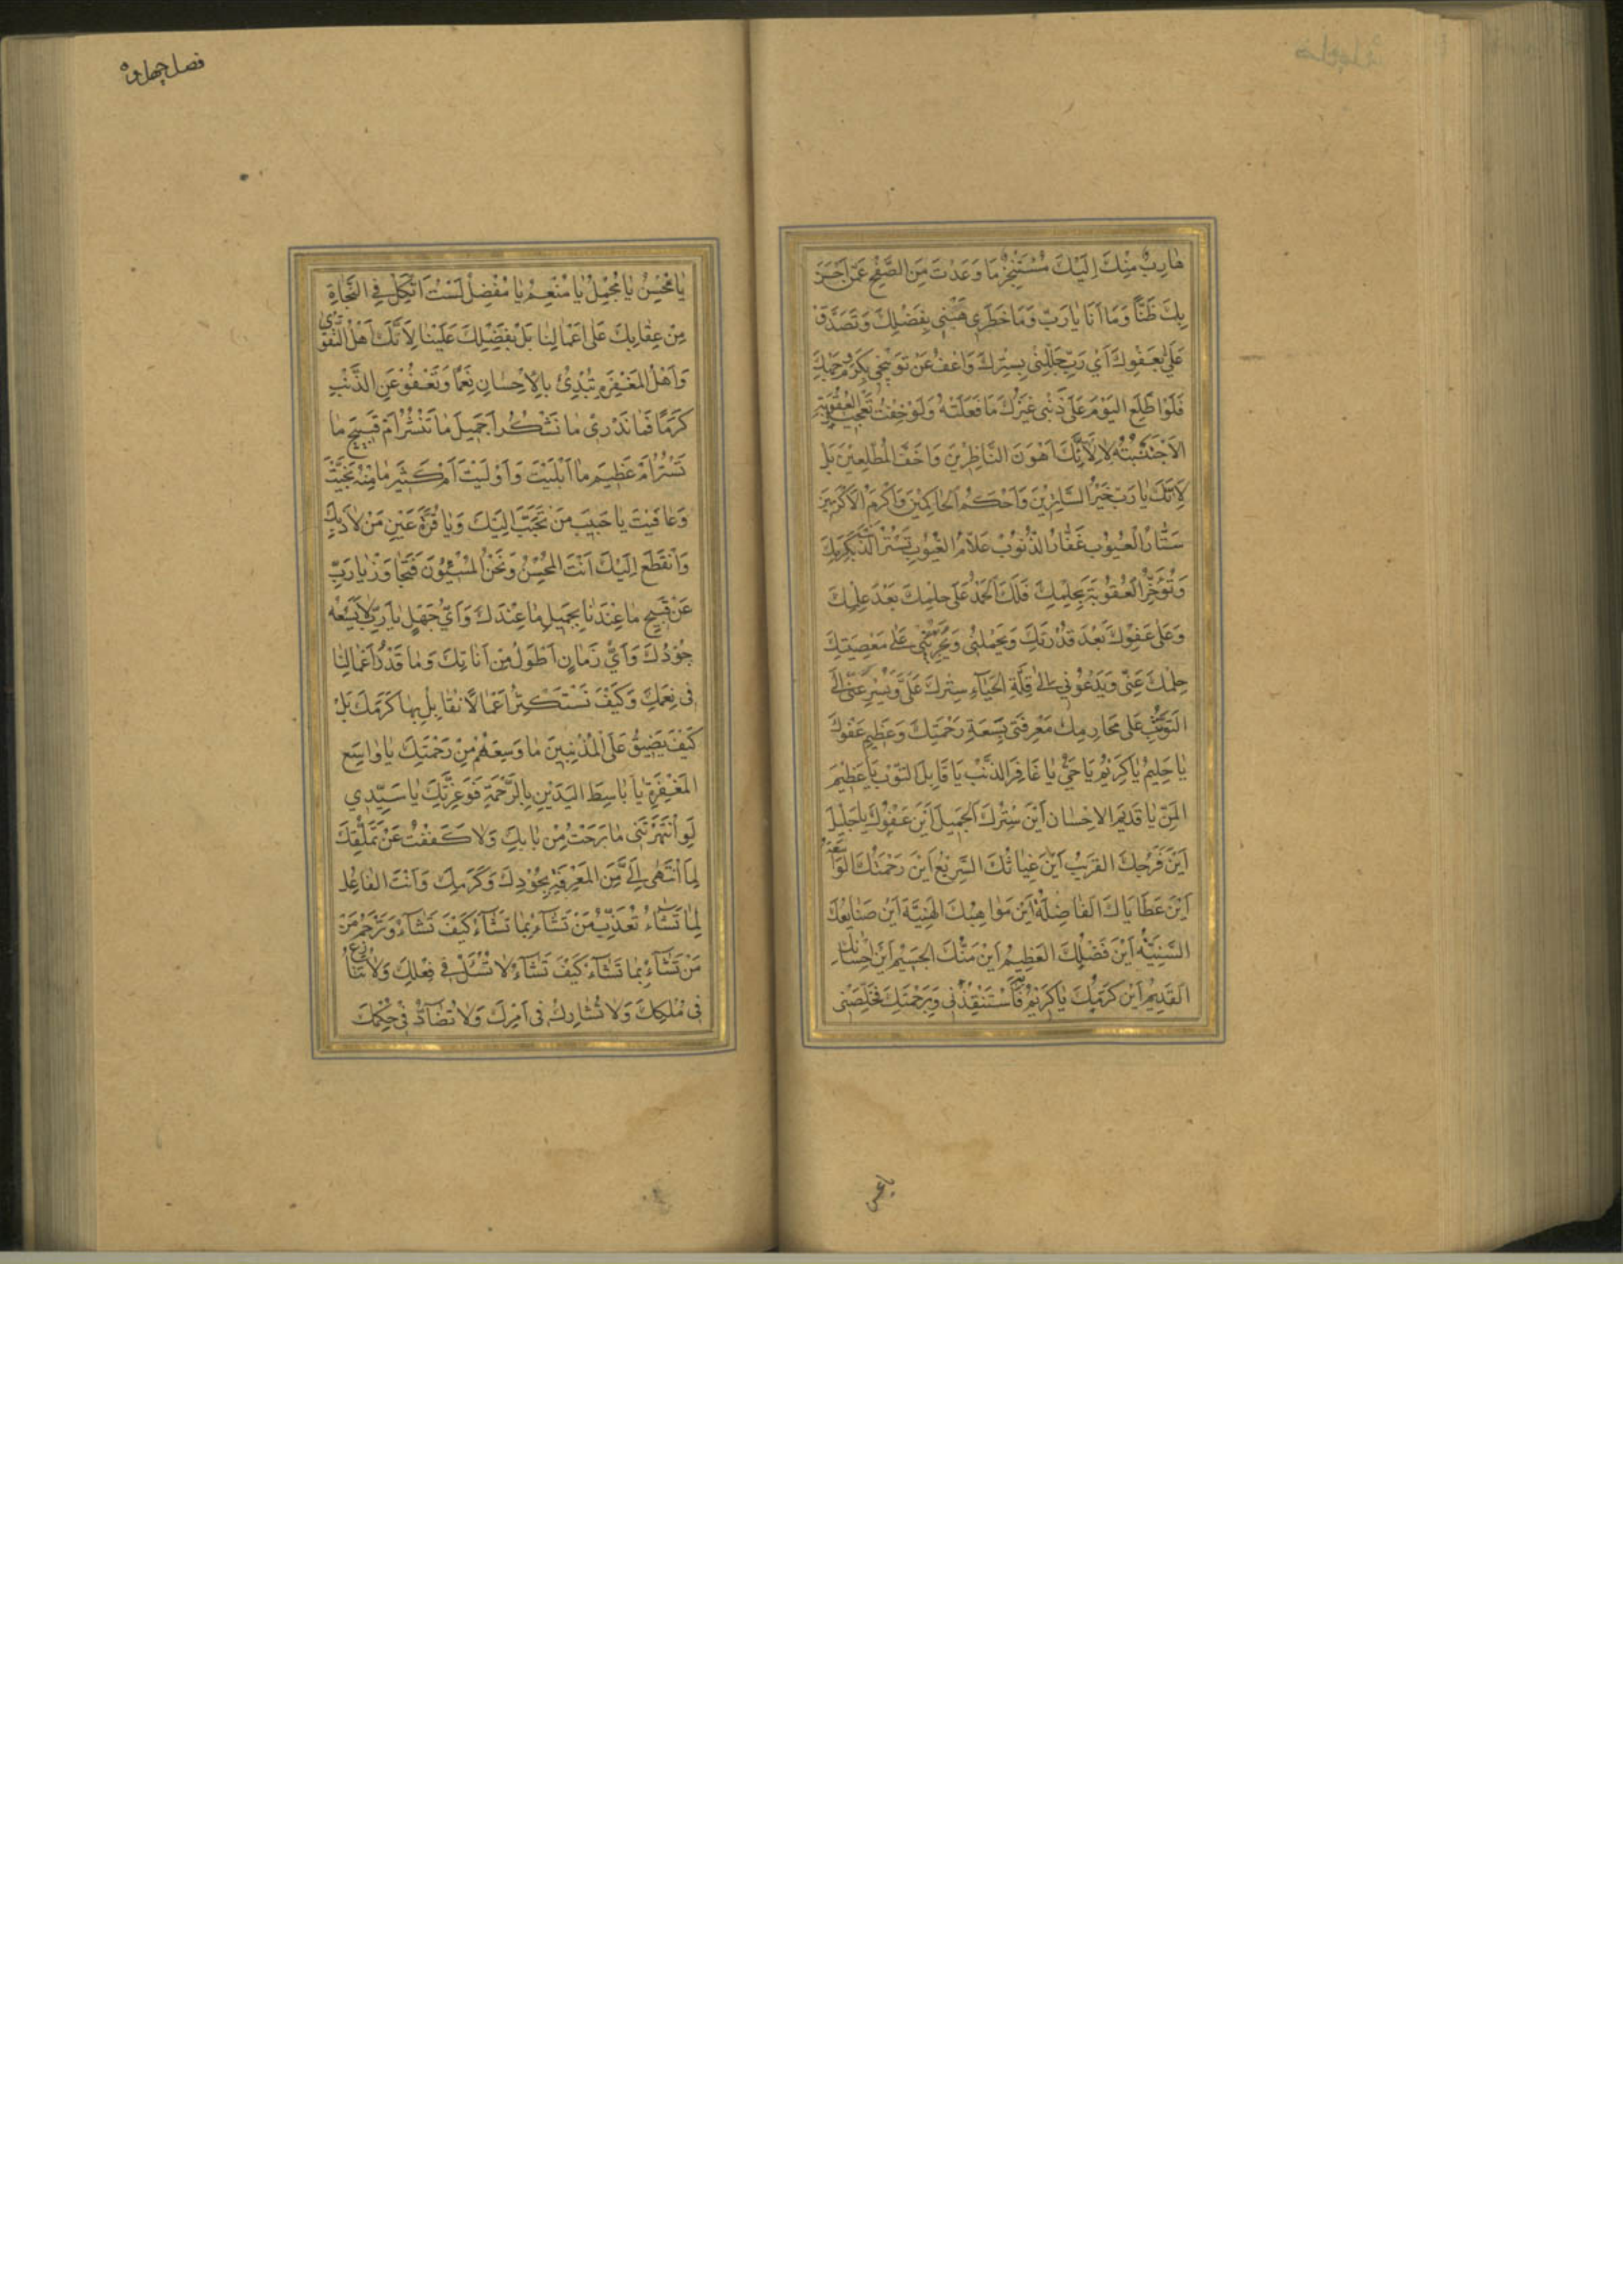 هَارِبٌ مِنْكَ اِلَيْكَ مُسْتَنْجِزٌ مَا وَعَدْتَ مِنَ الصَّفْحِ عَمَّنْ اَحْسَنَ
بِكَ ظَنًّا وَمَا اَنَا يَا رَبِّ وَمَا خَطَرِي هَبْنِي بِفَضْلِكَ وَتَصَدَّقْ
عَلَيَّ بِعَفْوِكَ اَيْ رَبِّ جَلِّلْنِي بِسِتْرِكَ وَاعْفُ عَنْ تَوْبِيخِي بِكَرَمِ وَجْهِكَ
فَلَوِ اطَّلَعَ الْيَوْمَ عَلَى ذَنْبِي غَيْرُكَ مَا فَعَلْتُهُ وَلَوْ خِفْتُ تَعْجِيلَ الْعُقُوبَةِ
لَاجْتَنَبْتُهُ لَا لِاَنَّكَ اَهْوَنُ النَّاظِرِينَ وَاَخَفُّ الْمُطَّلِعِينَ بَلْ
لِاَنَّكَ يَا رَبِّ خَيْرُ السَّاتِرِينَ وَاَحْكَمُ الْحَاكِمِينَ وَاَكْرَمُ الْاَكْرَمِينَ
سَتَّارُ الْعُيُوبِ غَفَّارُ الذُّنُوبِ عَلَّامُ الْغُيُوبِ تَسْتُرُ الذَّنْبَ بِكَرَمِكَ
وَتُؤَخِّرُ الْعُقُوبَةَ بِحِلْمِكَ فَلَكَ الْحَمْدُ عَلَى حِلْمِكَ بَعْدَ عِلْمِكَ
وَعَلَى عَفْوِكَ بَعْدَ قُدْرَتِكَ وَيَحْمِلُنِي وَيُجَرِّئُنِي عَلَى مَعْصِيَتِكَ
حِلْمُكَ عَنِّي وَيَدْعُونِي اِلَى قِلَّةِ الْحَيَاءِ سِتْرُكَ عَلَيَّ وَيُسْرِعُنِي اِلَى
التَّوَثُّبِ عَلَى مَحَارِمِكَ مَعْرِفَتِي بِسَعَةِ رَحْمَتِكَ وَعَظِيمِ عَفْوِكَ
يَا حَلِيمُ يَا كَرِيمُ يَا حَيُّ يَا غَافِرَ الذَّنْبِ يَا قَابِلَ التَّوْبِ يَا عَظِيمَ
الْمَنِّ يَا قَدِيمَ الْاِحْسَانِ اَيْنَ سِتْرُكَ الْجَمِيلُ اَيْنَ عَفْوُكَ الْجَلِيلُ
اَيْنَ فَرَجُكَ الْقَرِيبُ اَيْنَ غِيَاثُكَ السَّرِيعُ اَيْنَ رَحْمَتُكَ الْوَاسِعَةُ
اَيْنَ عَطَايَاكَ الْفَاضِلَةُ اَيْنَ مَوَاهِبُكَ الْهَنِيئَةُ اَيْنَ صَنَايِعُكَ
السَّنِيَّةُ اَيْنَ فَضْلُكَ الْعَظِيمُ اَيْنَ مَنُّكَ الْجَسِيمُ اَيْنَ اِحْسَانُكَ
الْقَدِيمُ اَيْنَ كَرَمُكَ يَا كَرِيمُ بِهِ فَاسْتَنْقِذْنِي وَبِرَحْمَتِكَ فَخَلِّصْنِي
يَا مُحْسِنُ يَا مُجْمِلُ يَا مُنْعِمُ يَا مُفْضِلُ لَسْتُ اَتَّكِلُ فِي النَّجَاةِ
مِنْ عِقَابِكَ عَلَى اَعْمَالِنَا بَلْ بِفَضْلِكَ عَلَيْنَا لِاَنَّكَ اَهْلُ التَّقْوَى
وَاَهْلُ الْمَغْفِرَةِ تُبْدِئُ بِالْاِحْسَانِ نِعَمًا وَتَعْفُو عَنِ الذَّنْبِ
كَرَمًا فَمَا نَدْرِي مَا نَشْكُرُ اَجَمِيلَ مَا تَنْشُرُ اَمْ قَبِيحَ مَا
تَسْتُرُ اَمْ عَظِيمَ مَا اَبْلَيْتَ وَاَوْلَيْتَ اَمْ كَثِيرَ مَا مِنْهُ نَجَّيْتَ
وَعَافَيْتَ يَا حَبِيبَ مَنْ تَحَبَّبَ اِلَيْكَ وَيَا قُرَّةَ عَيْنِ مَنْ لَاذَ بِكَ
وَانْقَطَعَ اِلَيْكَ اَنْتَ الْمُحْسِنُ وَنَحْنُ الْمُسِيئُونَ فَتَجَاوَزْ يَا رَبِّ
عَنْ قَبِيحِ مَا عِنْدَنَا بِجَمِيلِ مَا عِنْدَكَ وَاَيُّ جَهْلٍ يَا رَبِّ لَا يَسَعُهُ
جُودُكَ وَاَيُّ زَمَانٍ اَطْوَلُ مِنْ اَنَاتِكَ وَمَا قَدْرُ اَعْمَالِنَا
فِي نِعَمِكَ وَكَيْفَ نَسْتَكْثِرُ اَعْمَالًا نُقَابِلُ بِهَا كَرَمَكَ بَلْ
كَيْفَ يَضِيقُ عَلَى الْمُذْنِبِينَ مَا وَسِعَهُمْ مِنْ رَحْمَتِكَ يَا وَاسِعَ
الْمَغْفِرَةِ يَا بَاسِطَ الْيَدَيْنِ بِالرَّحْمَةِ فَوَعِزَّتِكَ يَا سَيِّدِي
لَوِ انْتَهَرْتَنِي مَا بَرِحْتُ مِنْ بَابِكَ وَلَا كَفَفْتُ عَنْ تَمَلُّقِكَ
لِمَا انْتَهَى اِلَيَّ مِنَ الْمَعْرِفَةِ بِجُودِكَ وَكَرَمِكَ وَاَنْتَ الْفَاعِلُ
لِمَا تَشَاءُ تُعَذِّبُ مَنْ تَشَاءُ بِمَا تَشَاءُ كَيْفَ تَشَاءُ وَتَرْحَمُ مَنْ
مَنْ تَشَاءُ بِمَا تَشَاءُ كَيْفَ تَشَاءُ لَا تُسْئَلُ فِي فِعْلِكَ وَلَا تُنَازَعُ
فِي مُلْكِكَ وَلَا تُشَارَكُ فِي اَمْرِكَ وَلَا تُضَادُّ فِي حُكْمِكَ